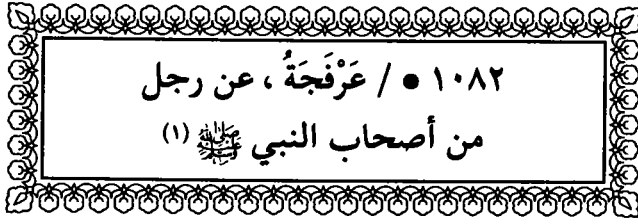 ١٠٨٢ ● / عَرْفَجَةُ ، عن رجل
من أصحاب النبي ﷺ (١)